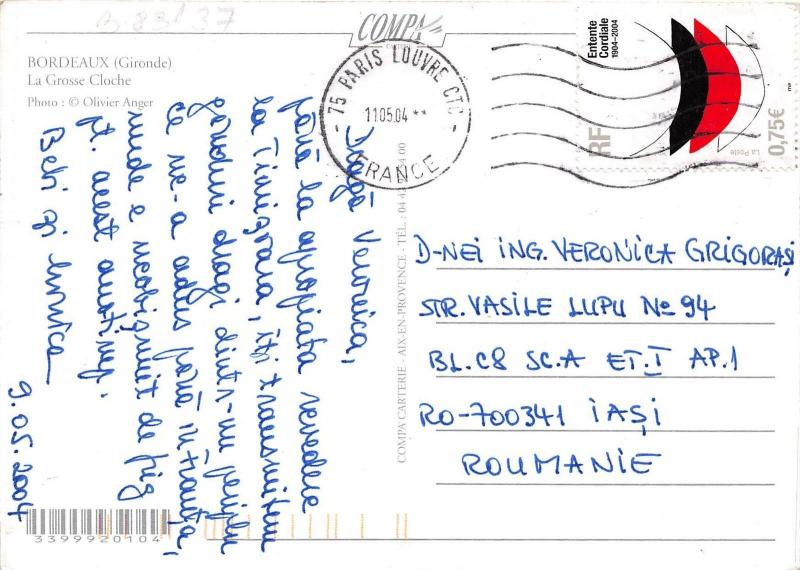 B-83137
COMPA
BORDEAUX (Gironde)
La Grosse Cloche
Photo : © Olivier Anger
Dragă Veronica,
până la apropiata revedere
la Timișoara, îți transmitem
gânduri dragi dintr-un periplu
ce ne-a adus până în Franța,
unde e neobișnuit de frig
pt. acest anotimp.
Bebi și Monica
9.05.2004
3399920104
COMPA CARTERIE - AIX-EN-PROVENCE - TÉL. : 04
75 PARIS LOUVRE CTC
11 05 04 **
FRANCE
Entente
Cordiale
1904-2004
RF
La Poste
0,75€
D-NEI ING. VERONICA GRIGORAȘI
STR. VASILE LUPU No 94
BL.C8 SC.A ET.I AP.1
RO-700341 IAȘI
ROUMANIE